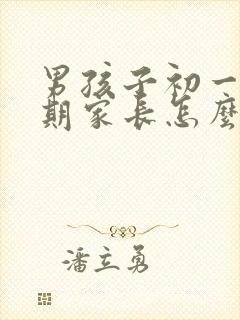 男孩子初一
期家长怎麽
潘立勇